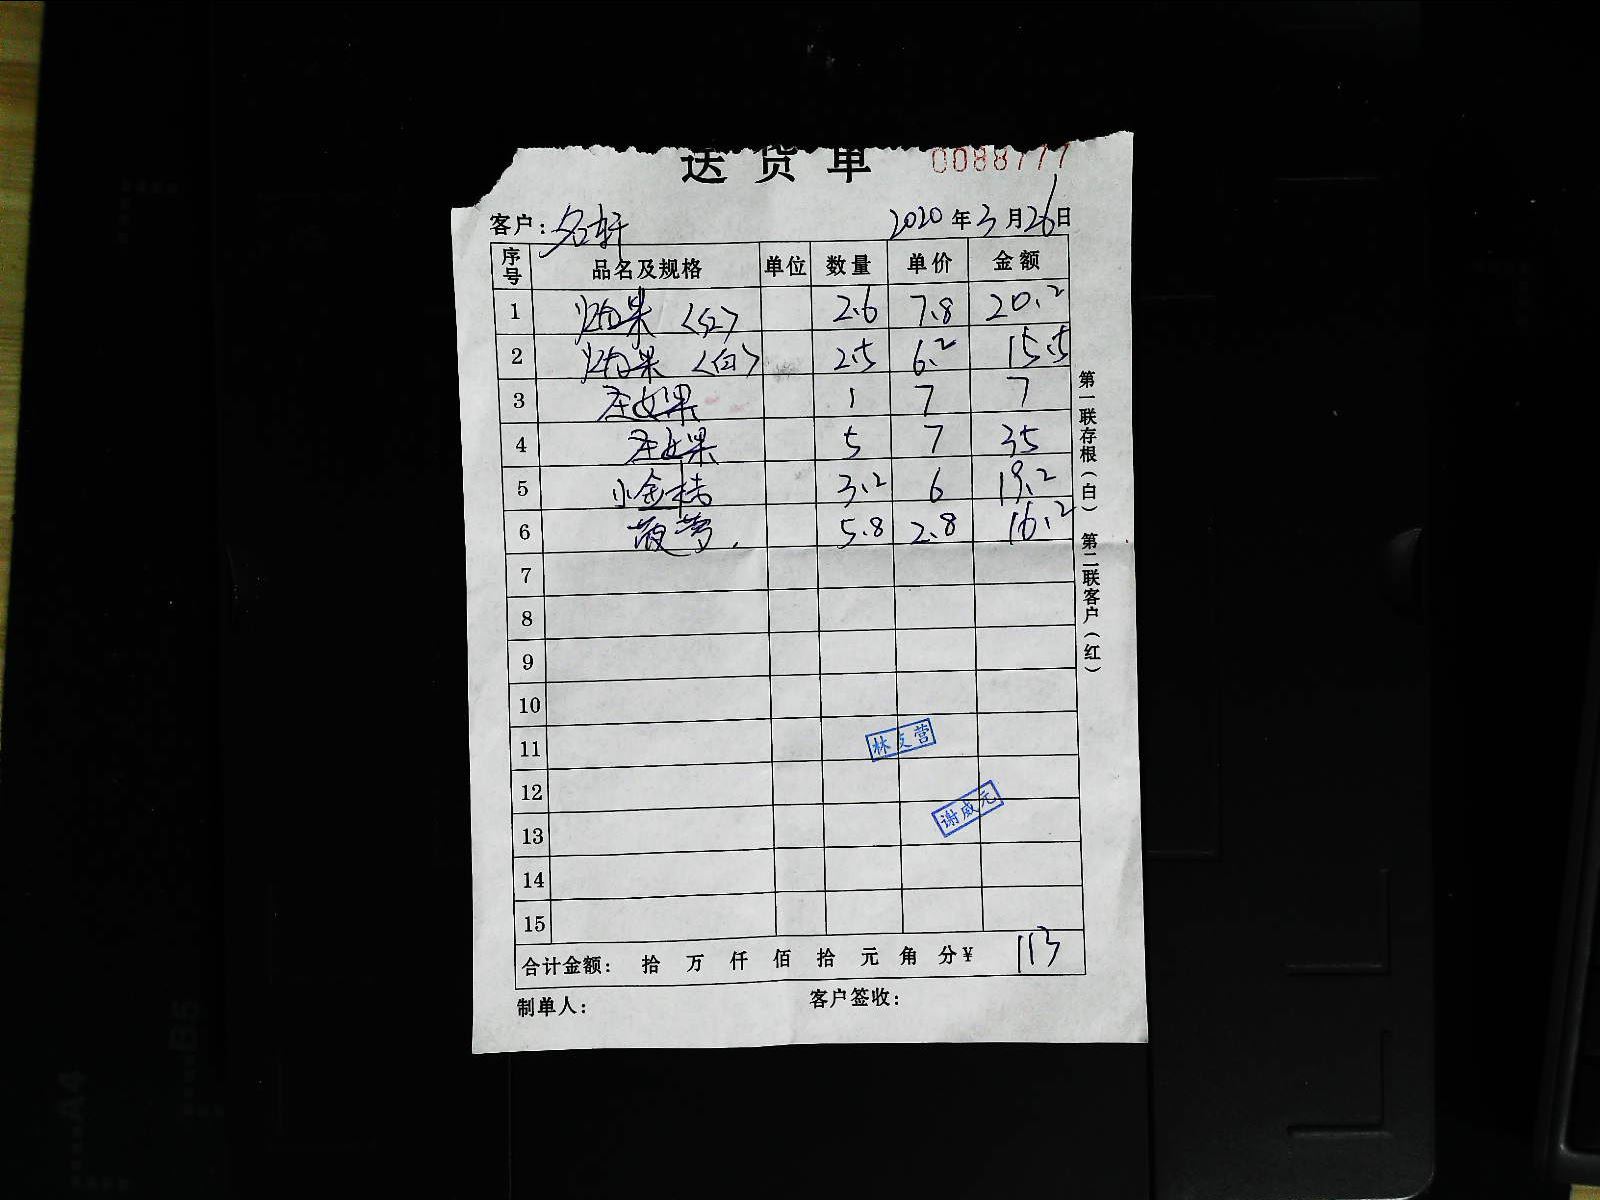 送货单 0088777
客户: 名轩 2020年3月26日
序号 品名及规格 单位 数量 单价 金额
1 火龙果 <红> 2.6 7.8 20.2
2 火龙果 <白> 2.5 6.2 15.5
3 圣女果 1 7 7
4 圣女果 5 7 35
5 小金桔 3.2 6 19.2
6 菠萝. 5.8 2.8 16.2
7
8
9
10
11
林文营
12
谢威元
13
14
15
合计金额: 拾 万 仟 佰 拾 元 角 分¥ 113
制单人: 客户签收:
第一联存根(白) 第二联客户(红)